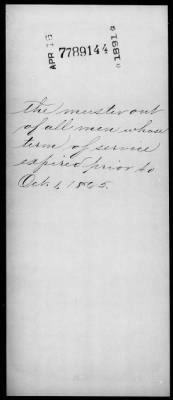 APR 16 7789144 1891
the muster out
of all men whose
term of service
expired prior to
Oct. 1, 1865.